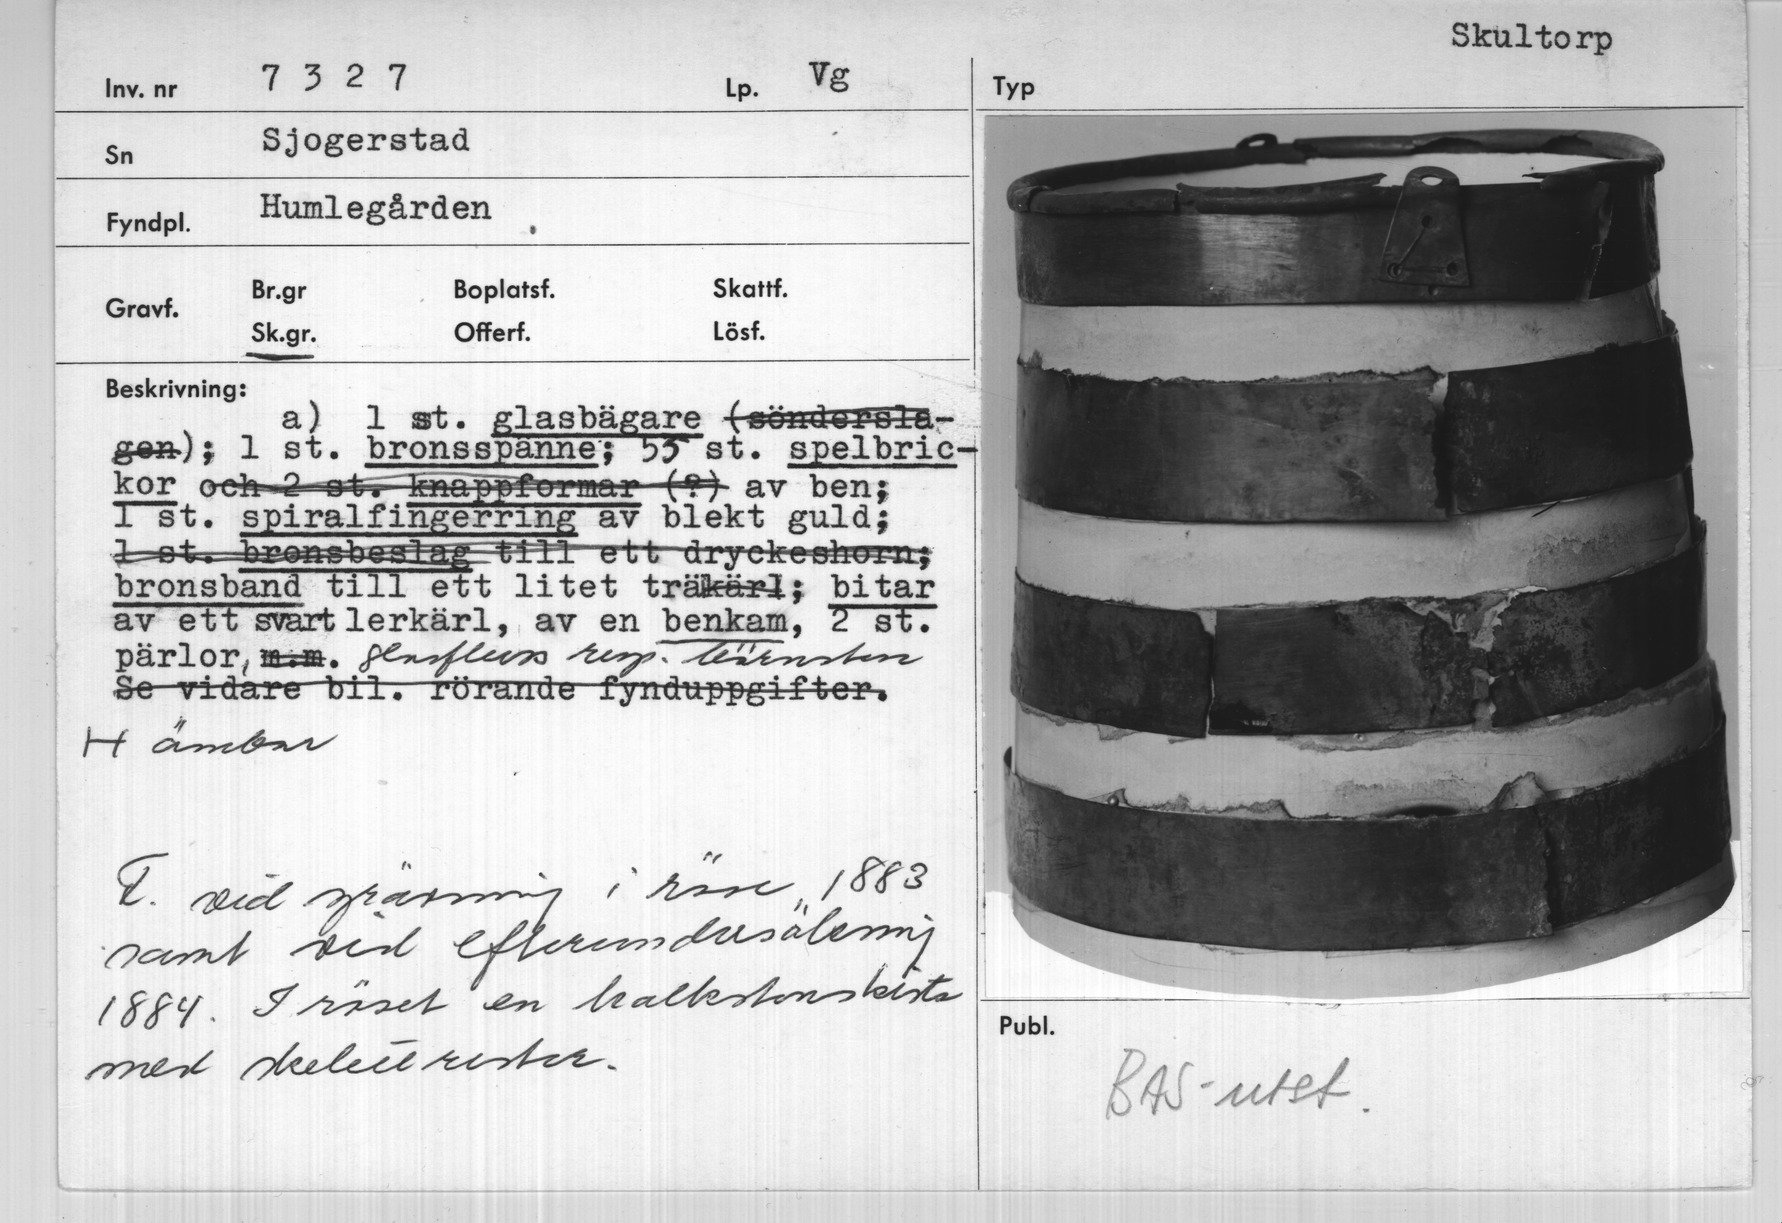 Skultorp
Inv. nr 7 3 2 7 Lp. Vg
Typ
Sn Sjogerstad
Fyndpl. Humlegården
Gravf. Br.gr Boplatsf. Skattf.
Sk.gr. Offerf. Lösf.
Beskrivning:
a) 1 st. glasbägare (söndersla-
gen); 1 st. bronsspänne; 53 st. spelbric-
kor och 2 st. knappformar (?) av ben;
1 st. spiralfingerring av blekt guld;
1 st. bronsbeslag till ett dryckeshorn;
bronsband till ett litet träkärl; bitar
av ett svart lerkärl, av en benkam, 2 st.
pärlor, m.m. glasfluss resp. bärnsten
Se vidare bil. rörande fynduppgifter.
H ämbar
F. vid grävning i röse 1883
samt vid efterundersökning
1884. I röset en kalkstenskista
med skelettrester.
Publ.
BAS-utst.